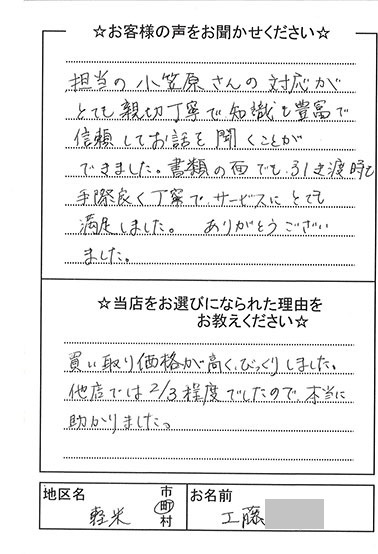 ☆お客様の声をお聞かせください☆
担当の小笠原さんの対応が
とても親切丁寧で知識も豊富で
信頼してお話を聞くことが
できました。書類の面でも、引き渡時も
手際良く丁寧で、サービスにとても
満足しました。 ありがとうござい
ました。
☆当店をお選びになられた理由を
お教えください☆
買い取り価格が高く、びっくりしました。
他店では2/3程度でしたので、本当に
助かりました。
地区名 軽米 市町村 お名前 工藤